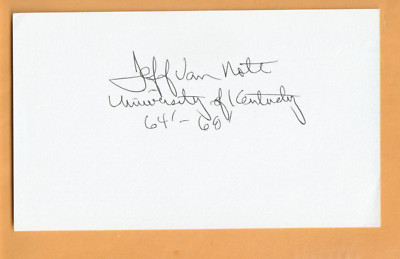 Jeff Van Note
University of Kentucky
64'-68'